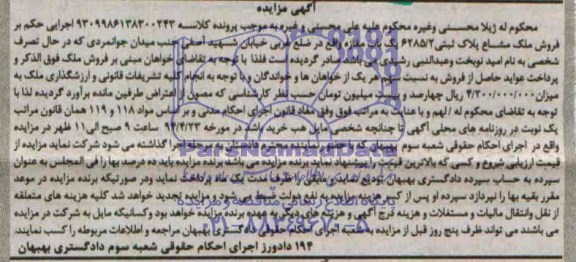 آگهی مزایده
محکوم له ژیلا محسنی وغیره محکوم علیه علی محسنی و غیره به موجب پرونده کلاسه ۹۳۰۹۹۸۶۱۳۸۳۰۰۲۴۳ اجرایی حکم بر
فروش ملک مشاع پلاک ثبتی ۶۲۸۵/۲ یک باب مغازه واقع در ضلع غربی خیابان شهید اصفی جنب میدان جوانمردی که در حال تصرف
شخصی به نام امید نوبخت وعبدالنبی رشیدی می باشد صادر گردیده است فلذا با توجه به تقاضای خواهان مبنی بر فروش ملک فوق الذکر و
پرداخت عواید حاصل از فروش به نسبت سهم هر یک از خواهان ها و خواندگان و با توجه به انجام کلیه تشریفات قانونی و ارزشگذاری ملک به
میزان ۴/۲۰۰/۰۰۰/۰۰۰ ریال چهارصد و بیست میلیون تومان حسب نظر کارشناسی که مصون از اعتراض طرفین مانده برآورد گردیده لذا با
توجه به تقاضای محکوم له / لهم و با عنایت به مراتب فوق وفق مفاد قانون اجرای احکام مدنی و بر اساس مواد ۱۱۸ و ۱۱۹ همان قانون مراتب
یک نوبت در روزنامه های محلی آگهی تا چنانچه شخصی مایل هب خرید باشد در مورخه ۹۴/۴/۲۳ ساعت ۹ صبح الی ۱۱ ظهر در مزایده
واقع در اجرای احکام حقوقی شعبه سوم بهبهان که با حضور نماینده محترم دادستان به مرحله اجرا گذاشته می شود شرکت نماید مزایده از
قیمت ارزیابی شروع و کسی که بالاترین قیمت را پیشنهاد نماید برنده مزایده می باشد برنده مزایده باید ده درصد بها را فی المجلس به عنوان
سپرده به حساب سپرده دادگستری بهبهان تودیع نماید و مابقی را ظرف مدت یک ماه پرداخت نماید ودر صورتیکه برنده مزایده در موعد
مقرر بقیه بها را نپردازد سپرده او پس از کسر هزینه مزایده به نفع دولت ضبط می شود و مزایده تجدید خواهد شد کلیه هزینه های متعلقه
از نقل وانتقال مالیات و مستغلات و هزینه درج آگهی و هزینه های دیگر به عهده برنده مزایده خواهد بود وکسانیکه مایل به شرکت در مزایده
می باشند می تواند ظرف پنج روز قبل از مزایده به شعبه اجرای احکام حقوقی دادگستری بهبهان مراجعه و اطلاعات مربوطه را کسب نمایند
۱۹۴ دادورز اجرای احکام حقوقی شعبه سوم دادگستری بهبهان